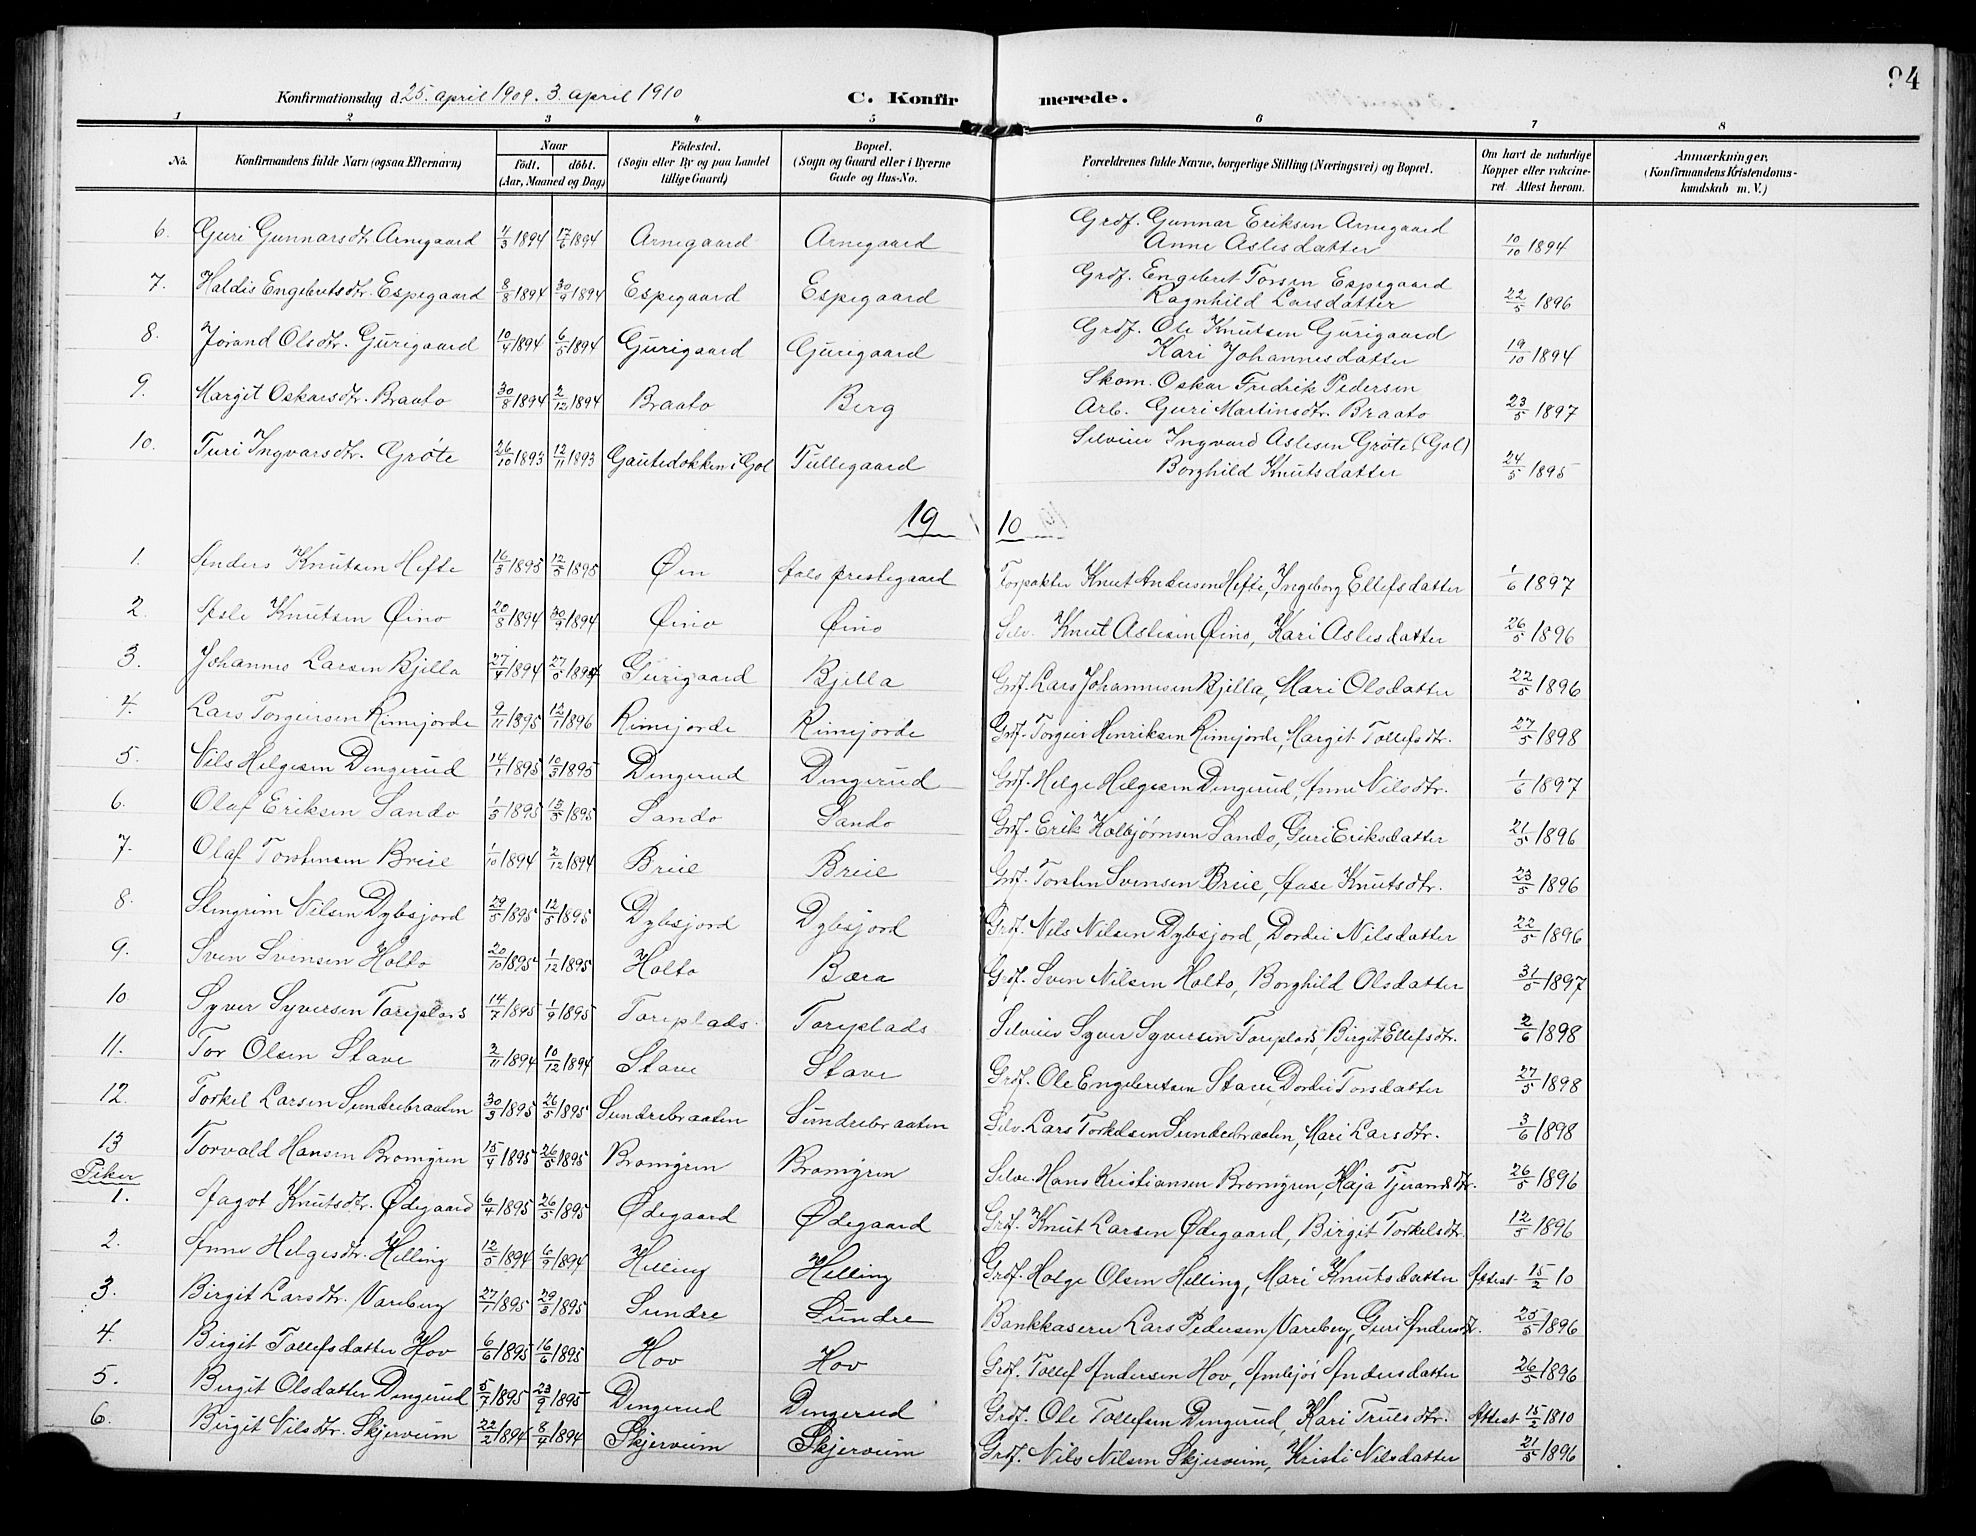 94
Konfirmationsdag d. 25. april 1909. 3 april 1910 C. Konfirmerede.
1 2 3 4 5 6 7 8
No. Konfirmandens fulde Navn (ogsaa Efternavn) Naar født. døbt. (Aar, Maaned og Dag) Fødested. (Sogn eller By og paa Landet tillige Gaard) Bopæl. (Sogn og Gaard eller i Byerne Gade og Hus-No. Forældrenes fulde Navne, borgerlige Stilling (Næringsvei) og Bopæl. Om havt de naturlige Kopper eller vaccineret. Attest herom. Anmærkninger. (Konfirmandens Kristendomskundskab m. V.)
6. Guri Gunnarsdtr Arnegaard 4/3 1894 17/6 1894 Arnegaard Arnegaard Grdf. Gunnar Eriksen Arnegaard
Anne Aslesdatter 10/10 1894
7. Haldis Engebretsdtr. Espegaard 8/8 1894 30/9 1894 Espegaard Espegaard Grdf. Engebret Torsen Espegaard
Ragnhild Larsdatter 22/5 1896
8. Jørand Olsdtr. Gurigaard 10/4 1894 6/5 1894 Gurigaard Gurigaard Grdf. Ole Knutsen Gurigaard
Kari Johannesdatter 19/10 1894
9. Margit Oskarsdtr. Braato 30/8 1894 2/12 1894 Braato Berg Skom. Oskar Fredrik Pedersen
Arb. Guri Martinsdtr. Braato 23/5 1897
10. Turi Ingvarsdtr. Grøte 26/10 1893 12/11 1893 Gautedokken i Gol Tullegaard Selveier Ingvard Aslesen Grøte (Gol)
Borghild Knutsdatter 24/5 1895
19 10
1. Anders Knutsen Hefte 16/3 1895 12/5 1895 Øen Aals prestegaard Forpakter Knut Andersen Hefte, Ingeborg Ellefsdatter 1/6 1897
2. Asle Knutsen Øino 20/8 1894 30/9 1894 Øino Øino Selv. Knut Aslesen Øino, Kari Aslesdatter 26/5 1896
3. Johannes Larsen Bjella 27/4 1894 27/5 1894 Gurigaard Bjella Grdf. Lars Johannesen Bjella, Mari Olsdatter 22/5 1896
4. Lars Torgeirsen Rimejorde 9/11 1895 12/1 1896 Rimejorde Rimejorde Grdf. Torgeir Henriksen Rimejorde, Margit Tollefsdtr. 27/5 1898
5. Nils Helgesen Dengerud 14/1 1895 10/3 1895 Dengerud Dengerud Grdf. Helge Helgesen Dengerud, Anne Nilsdtr. 1/6 1897
6. Olaf Eriksen Sando 1/3 1895 15/5 1895 Sando Sando Grdf. Erik Kolbjørnsen Sando, Guri Eriksdatter 21/5 1896
7. Olaf Torstensen Breie 1/10 1894 2/12 1894 Breie Breie Grdf. Torsten Svensen Breie, Aase Knutsdtr. 23/5 1896
8. Slengrim Nilsen Dybsjord 29/5 1895 12/5 1895 Dybsjord Dybsjord Grdf. Nils Nilsen Dybsjord, Dordei Nilsdatter 22/5 1896
9. Sven Svensen Holto 20/10 1895 1/12 1895 Holto Bæra Grdf. Sven Nilsen Holto, Borghild Olsdatter 31/5 1897
10 Syver Syversen Toreplads 14/7 1895 1/9 1895 Toreplads Toreplads Selveier Syver Syversen Toreplads, Birgit Ellefsdtr. 2/6 1898
11. Tor Olsen Stave 2/11 1894 10/12 1894 Stave Stave Grdf. Ole Engebretsen Stave, Dordei Torsdatter 27/5 1898
12. Torkel Larsen Sundrebraaten 30/3 1895 26/5 1895 Sundrebraaten Sundrebraaten Selv. Lars Torkelsen Sundrebraaten, Mari Larsdtr. 3/6 1898
13 Torvald Hansen Bromgren 15/4 1895 26/5 1895 Bromgren Bromgren Selve. Hans Kristiansen Bromgren, Kaja Tjerandsdtr. 26/5 1896
Piker
1. Aagot Knutsdtr. Ødegaard 6/4 1895 26/5 1895 Ødegaard Ødegaard Grdf. Knut Larsen Ødegaard, Birgit Torkelsdtr. 12/5 1896
2. Anne Helgesdtr. Helling 12/5 1894 6/5 1894 Helling Helling Grdf. Helge Olsen Helling, Mari Knutsdatter Attest 15/2 10
3. Birgit Larsdtr. Vareberg 27/1 1895 29/3 1895 Sundre Sundre Bankkaserer Lars Pedersen Vareberg, Guri Andersdtr. 25/5 1896
4. Birgit Tollefsdatter Hov 6/6 1895 16/6 1895 Hov Hov Grdf. Tollef Andersen Hov, Ambjør Andersdatter 26/5 1896
5. Birgit Olsdatter Dengerud 5/7 1895 23/9 1895 Dengerud Dengerud Grdf. Ole Tollefsen Dengerud, Kari Trulsdtr. Attest 15/2 1810
6. Birgit Nilsdtr. Skjerveim 22/2 1894 8/4 1894 Skjerveim Skjerveim Grdf. Nils Nilsen Skjerveim, Kristi Nilsdatter 21/5 1896